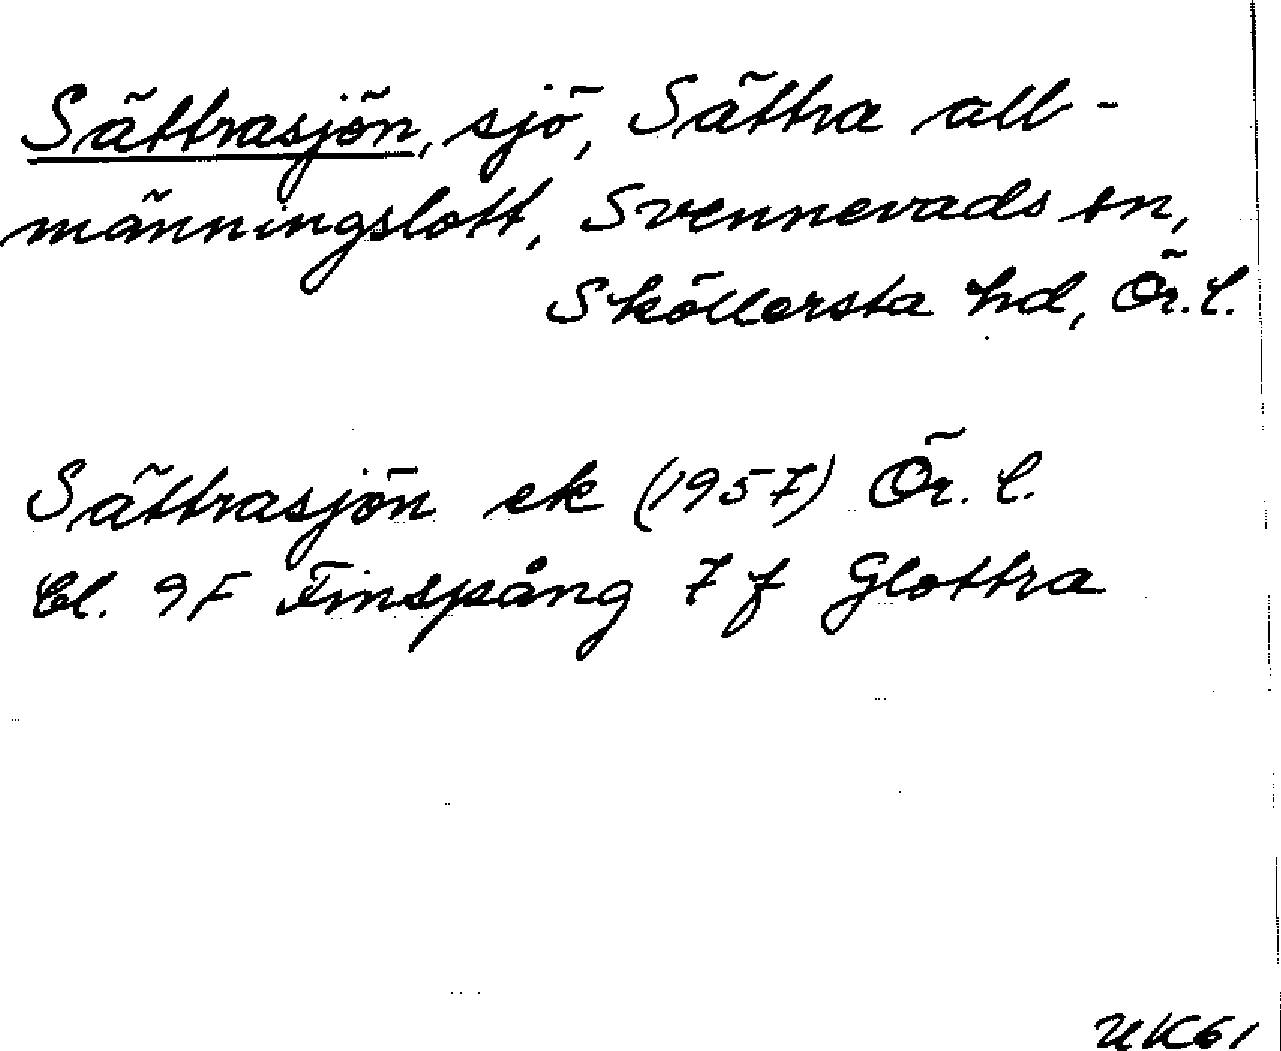 Sättrasjön, sjö, Sättra all-
männingslott, Svennevads sn,
Sköllersta hd, Ör. l.
Sättrasjön ek (1957) Ör. l.
Bl. 9F Finspång 7 f Glottra
UK61